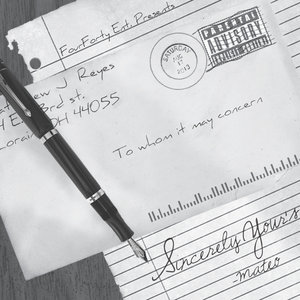 FourForty Ent. Presents
PARENTAL
ADVISORY
EXPLICIT CONTENT
SATURDAY
2013
J Reyes
3rd st.
Lorain, OH 44055
To whom it may concern
Sincerely Yours
-Mateo